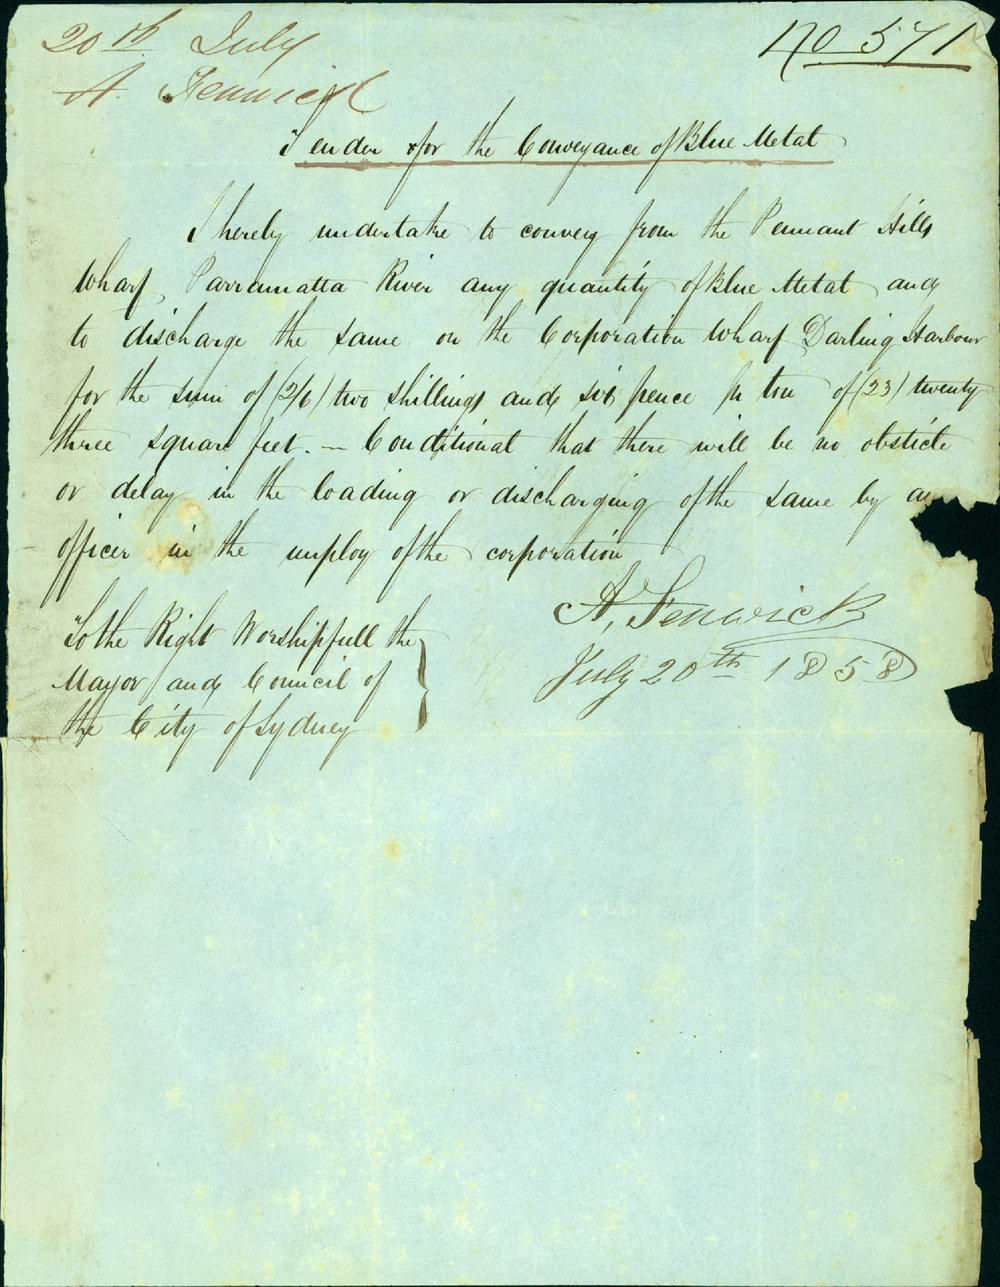 20th July
No 571
A. Fenwick
Tender for the Conveyance of Blue Metal
I herely undertake to convey from the Pennant Hills
Wharf Parramatta River any quantity of Blue Metal and
to discharge the same on the Corporation Wharf Darling Harbour
for the sum of (2/6) two shillings and six pence pr ton of (23) twenty
three square feet. — Conditional that there will be no obsticle
or delay in the loading or discharging of the same by an
officer in the employ of the corporation
A, Fenwick
July 20th 1858
To the Right Worshipfull the
Mayor and Council of
the City of Sydney